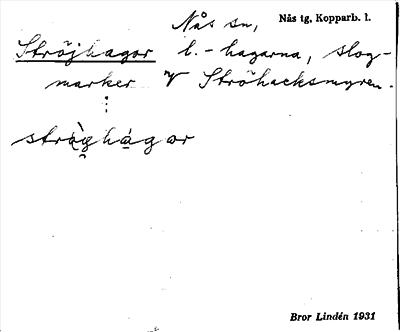 Nås sn, Nås tg, Kopparb. l.
Ströjhagor l. -hagarna, slog-
marker V Ströhacksmyren.
Bror Lindén 1931